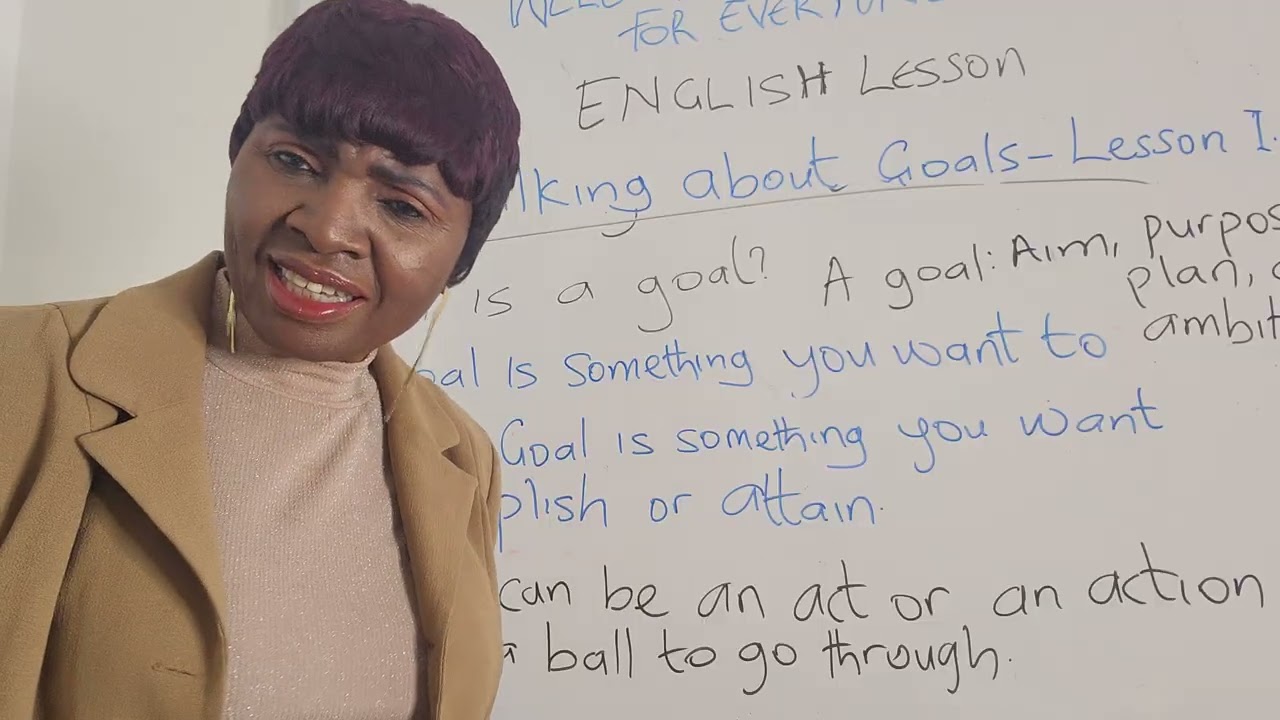 FOR
ENGLISH Lesson
lking about Goals - Lesson I.
is a goal? A goal: Aim, purpos
plan,
ambit
oal is something you want to
Goal is something you want
plish or attain.
can be an act or an action
a ball to go through.